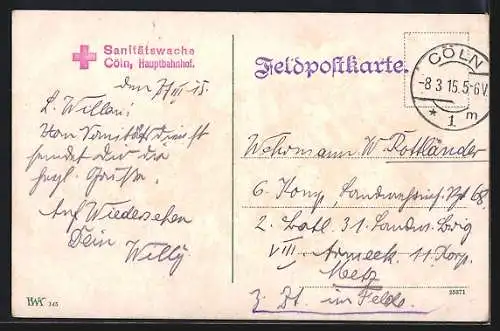 Sanitätswache
Cöln, Hauptbahnhof.
Feldpostkarte.
CÖLN
-8 3 15.5-6V
* 1 m
den 7/III 15.
L. Willem!
Vom Sanitätsdienst
sendet dir die
hzgl. Grüße.
Auf Wiedersehen
Dein
Willy
Wehrmann W. Rottländer
6. Komp. Landwehrinf. Rgt 68.
2. Batl. 31. Landw. Brig
VIII. Armeek. 11. Korp.
Metz
z. Zt. im Felde.
BWK 345
25371